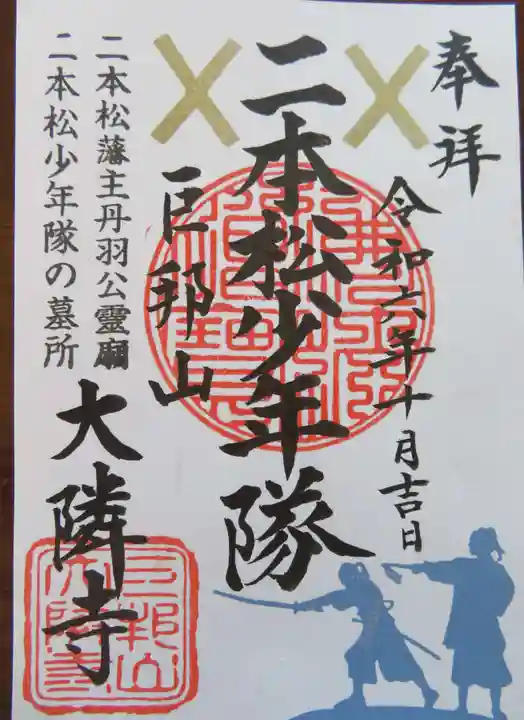 奉拝
令和六年十月吉日
二本松少年隊
巨邦山
大隣寺
二本松藩主丹羽公霊廟
二本松少年隊の墓所